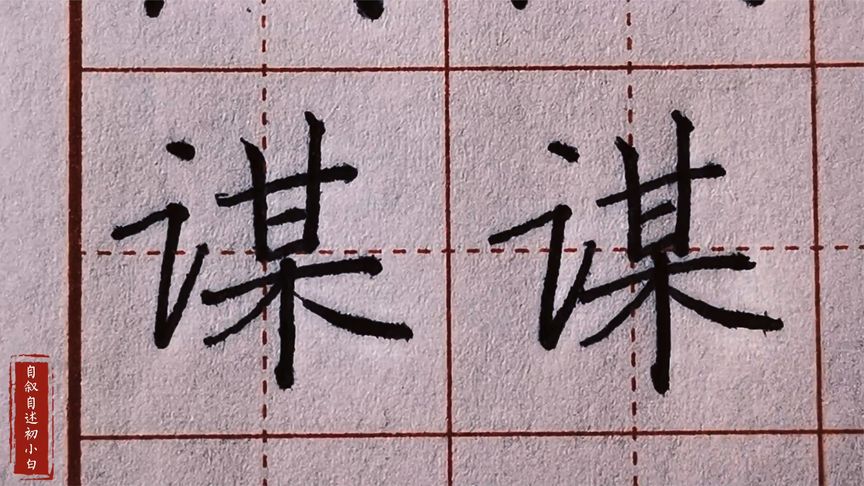 谋 谋
自叙自述初小白